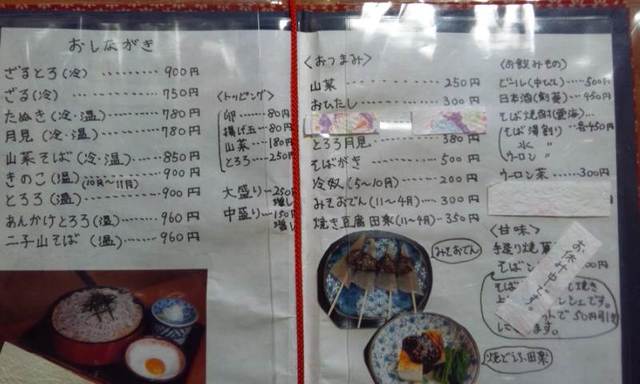 おしながき
ざるとろ(冷) ・・・・・・・・・・ 900円
ざる(冷) ・・・・・・・・・・ 750円
たぬき(冷・温) ・・・・・・・ 780円
月見(冷・温) ・・・・・・・・ 780円
山菜そば(冷・温)・・・・・・ 850円
きのこ(温)(10月〜11月) ・・・・・・ 900円
とろろ(温) ・・・・・・・・・・ 900円
あんかけとろろ(温)・・・・ 960円
二子山そば(温)・・・・・・・ 960円
〈トッピング〉
卵・・・・80円
揚げ玉・・80円
山菜・・・180円
とろろ・・・250円
大盛り・・・250円増し
中盛り・・・150円増し
〈おつまみ〉
山菜 250円
おひたし 300円
とろろ月見 380円
そばがき・・・・・・・・・・ 500円
冷奴(5〜10月)・・・・・・ 200円
みそおでん(11〜4月)・・・・ 300円
焼き豆腐田楽(11〜4月)・・350円
みそおでん
焼どうふ田楽
〈お飲みもの〉
ビール(中びん)・・・・500円
日本酒・・・450円
そば焼酎
そば湯割り・・各450円
氷 〃
ウーロン 〃
ウーロン茶・・・・・300円
〈甘味〉
手造り焼
そば
00円
お休み中です。
そば
焼き
上
です。
で50円引き
ます。